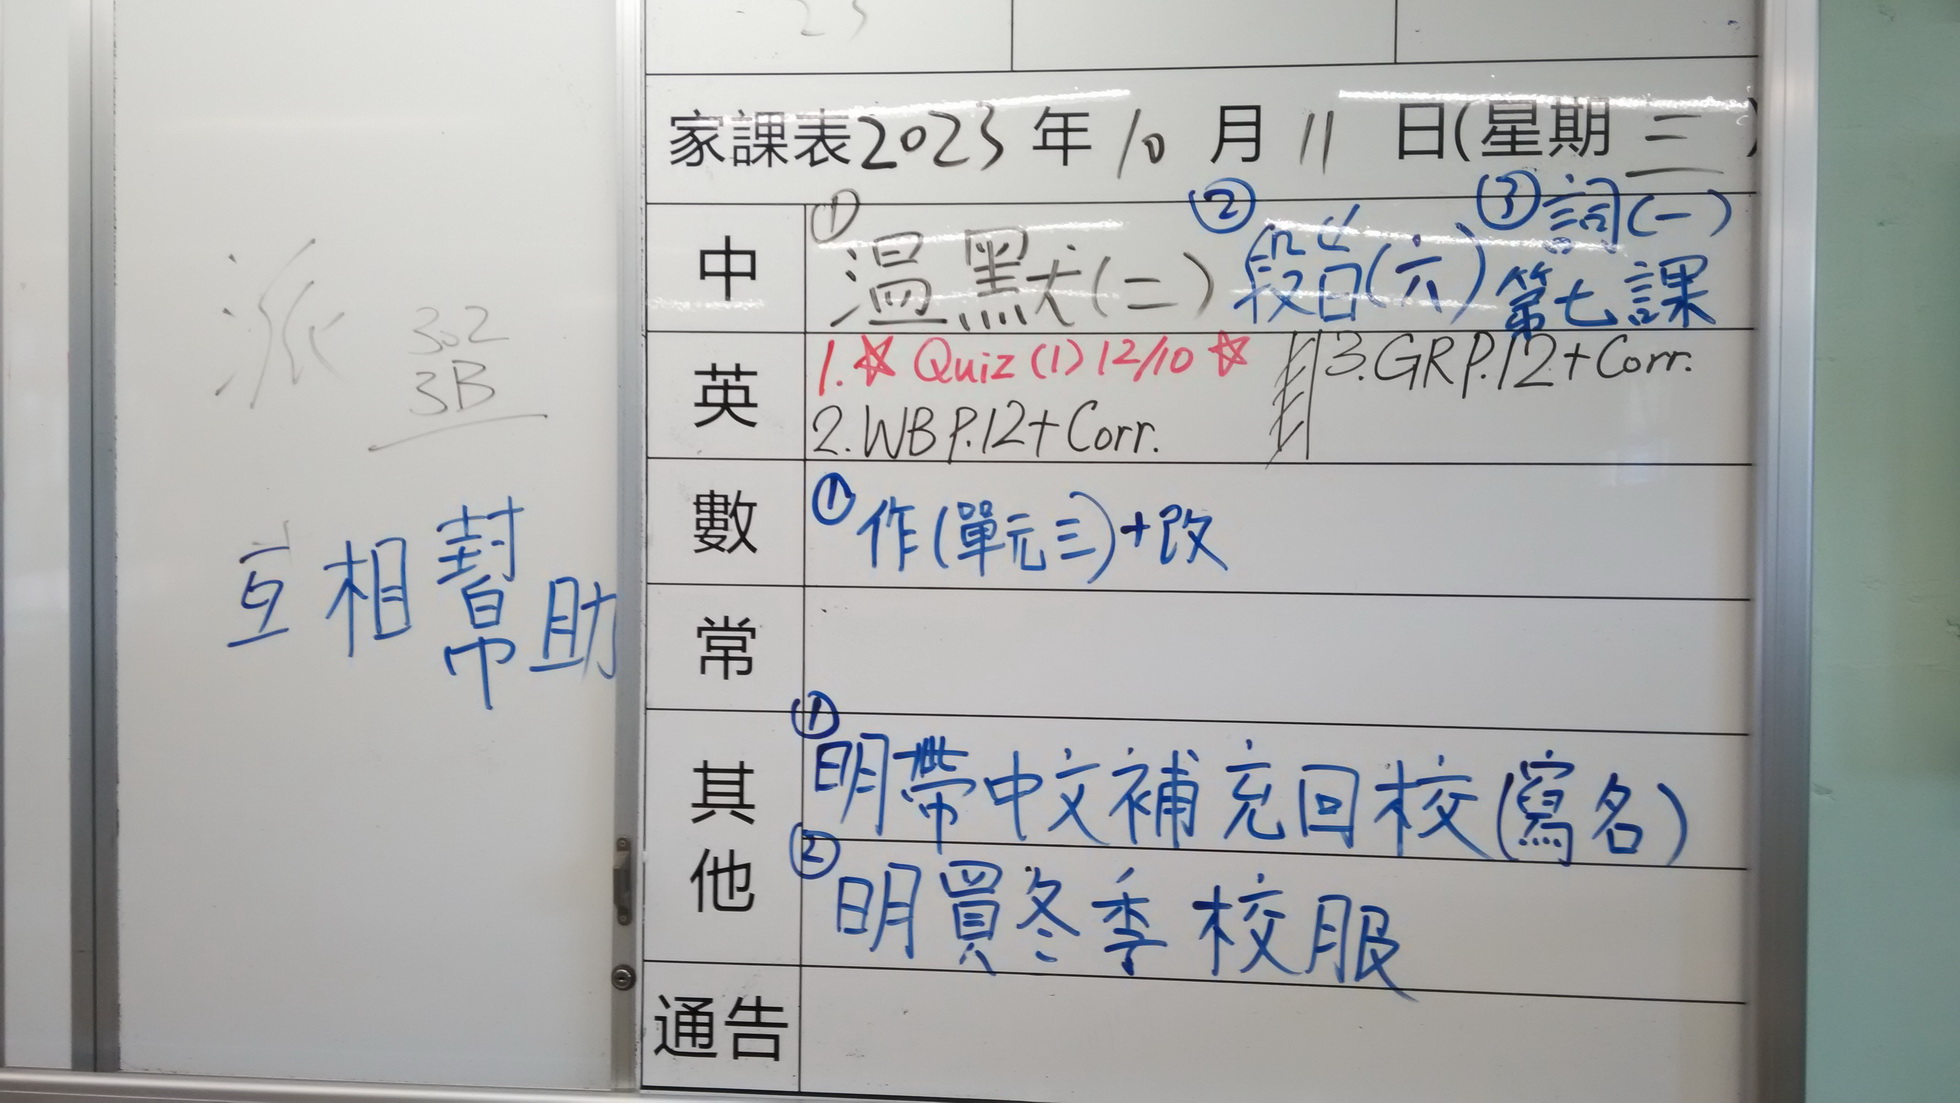 派 302
3B
互相幫助
家課表2023年10月11日(星期三)
中
① 温默(二) ② 段(六) ③ 詞(一)
第七課
英
1. ☆ Quiz (1) 12/10 ☆
2. WB P.12 + Corr.
3. GR P.12 + Corr.
數
① 作(單元三)+改
常
其他
① 明帶中文補充回校(寫名)
② 明買冬季校服
通告